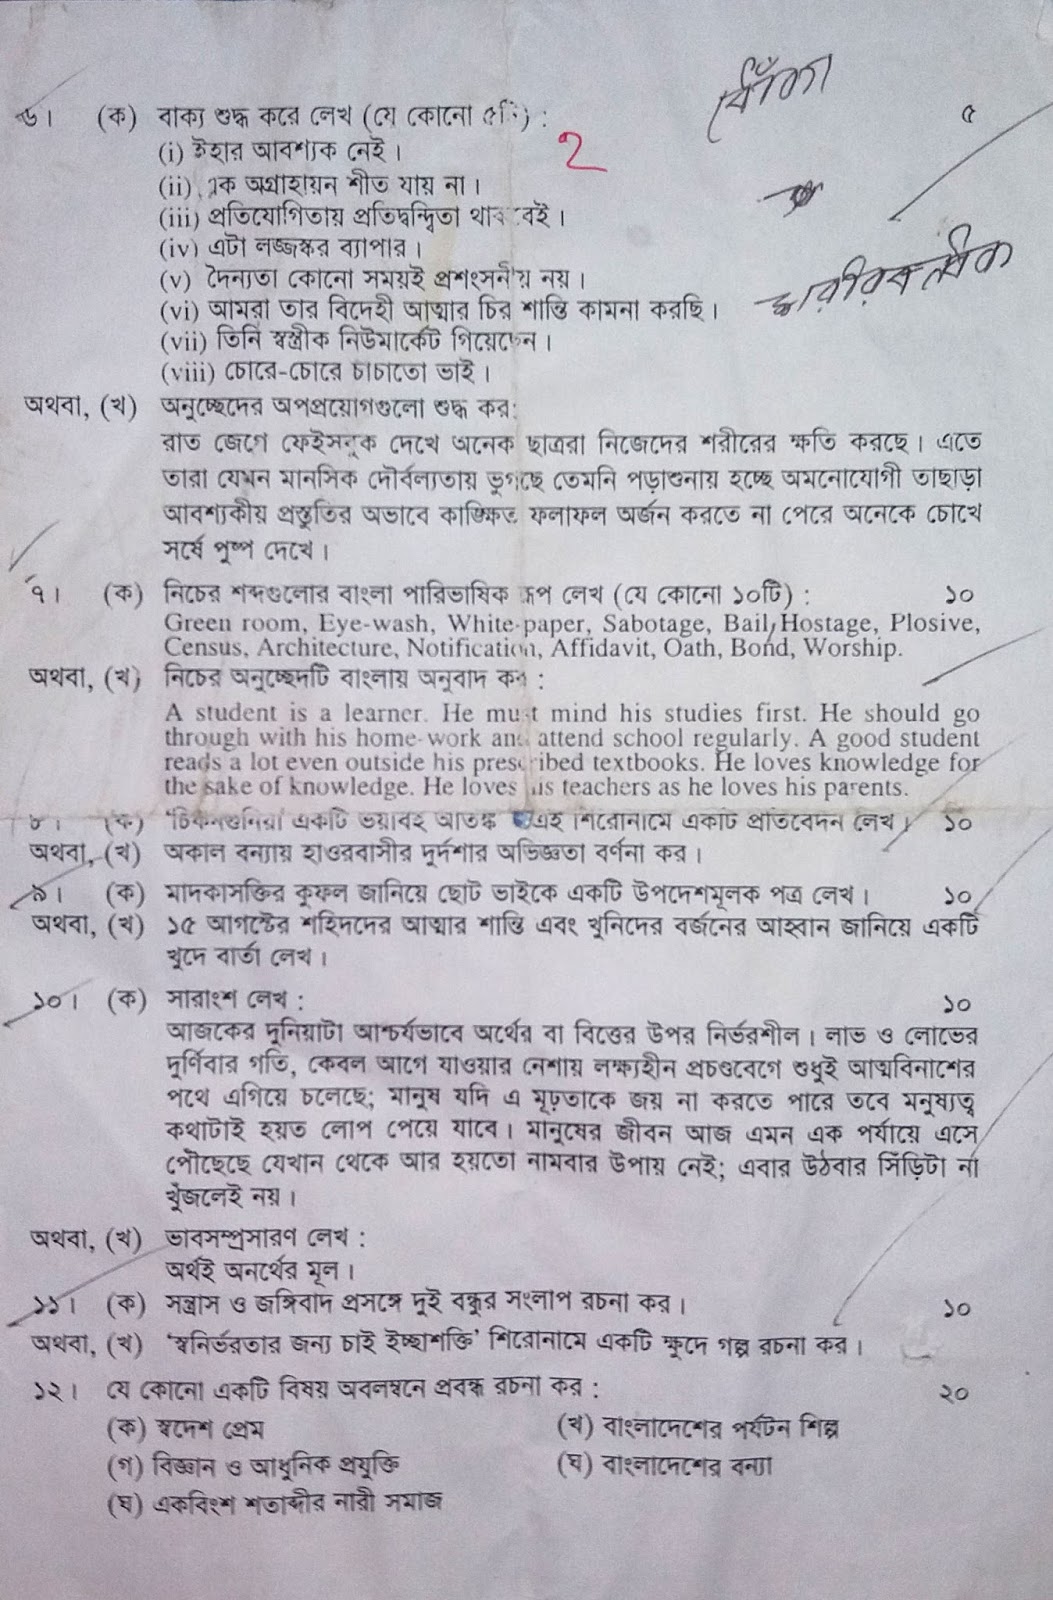 ৬। (ক) বাক্য শুদ্ধ করে লেখ (যে কোনো ৫টি) : ৫
(i) ইহার আবশ্যক নেই।
2
(ii) এক অগ্রাহায়ন শীত যায় না।
(iii) প্রতিযোগিতায় প্রতিদ্বন্দ্বিতা থাকবেই।
(iv) এটা লজ্জস্কর ব্যাপার।
(v) দৈন্যতা কোনো সময়ই প্রশংসনীয় নয়।
(vi) আমরা তার বিদেহী আত্মার চির শান্তি কামনা করছি।
(vii) তিনি স্বস্ত্রীক নিউমার্কেট গিয়েছেন।
(viii) চোরে-চোরে চাচাতো ভাই।
অথবা, (খ) অনুচ্ছেদের অপপ্রয়োগগুলো শুদ্ধ কর:
রাত জেগে ফেইসবুক দেখে অনেক ছাত্ররা নিজেদের শরীরের ক্ষতি করছে। এতে
তারা যেমন মানসিক দৌর্বল্যতায় ভুগছে তেমনি পড়াশুনায় হচ্ছে অমনোযোগী তাছাড়া
আবশ্যকীয় প্রস্তুতির অভাবে কাঙ্ক্ষিত ফলাফল অর্জন করতে না পেরে অনেকে চোখে
সর্ষে পুষ্প দেখে।
৭। (ক) নিচের শব্দগুলোর বাংলা পারিভাষিক রূপ লেখ (যে কোনো ১০টি) : ১০
Green room, Eye-wash, White-paper, Sabotage, Bail, Hostage, Plosive,
Census, Architecture, Notification, Affidavit, Oath, Bond, Worship.
অথবা, (খ) নিচের অনুচ্ছেদটি বাংলায় অনুবাদ কর :
A student is a learner. He must mind his studies first. He should go
through with his home-work and attend school regularly. A good student
reads a lot even outside his prescribed textbooks. He loves knowledge for
the sake of knowledge. He loves his teachers as he loves his parents.
৮। (ক) 'চিকনগুনিয়া একটি ভয়াবহ আতঙ্ক' এই শিরোনামে একটি প্রতিবেদন লেখ। ১০
অথবা, (খ) অকাল বন্যায় হাওরবাসীর দুর্দশার অভিজ্ঞতা বর্ণনা কর।
৯। (ক) মাদকাসক্তির কুফল জানিয়ে ছোট ভাইকে একটি উপদেশমূলক পত্র লেখ। ১০
অথবা, (খ) ১৫ আগস্টের শহিদদের আত্মার শান্তি এবং খুনিদের বর্জনের আহ্বান জানিয়ে একটি
খুদে বার্তা লেখ।
১০। (ক) সারাংশ লেখ : ১০
আজকের দুনিয়াটা আশ্চর্যভাবে অর্থের বা বিত্তের উপর নির্ভরশীল। লাভ ও লোভের
দুর্ণিবার গতি, কেবল আগে যাওয়ার নেশায় লক্ষ্যহীন প্রচণ্ডবেগে শুধুই আত্মবিনাশের
পথে এগিয়ে চলেছে; মানুষ যদি এ মূঢ়তাকে জয় না করতে পারে তবে মনুষ্যত্ব
কথাটাই হয়ত লোপ পেয়ে যাবে। মানুষের জীবন আজ এমন এক পর্যায়ে এসে
পৌঁছেছে যেখান থেকে আর হয়তো নামবার উপায় নেই; এবার উঠবার সিঁড়িটা না
খুঁজলেই নয়।
অথবা, (খ) ভাবসম্প্রসারণ লেখ :
অর্থই অনর্থের মূল।
১১। (ক) সন্ত্রাস ও জঙ্গিবাদ প্রসঙ্গে দুই বন্ধুর সংলাপ রচনা কর। ১০
অথবা, (খ) 'স্বনির্ভরতার জন্য চাই ইচ্ছাশক্তি' শিরোনামে একটি ক্ষুদে গল্প রচনা কর।
১২। যে কোনো একটি বিষয় অবলম্বনে প্রবন্ধ রচনা কর : ২০
(ক) স্বদেশ প্রেম (খ) বাংলাদেশের পর্যটন শিল্প
(গ) বিজ্ঞান ও আধুনিক প্রযুক্তি (ঘ) বাংলাদেশের বন্যা
(ঘ) একবিংশ শতাব্দীর নারী সমাজ